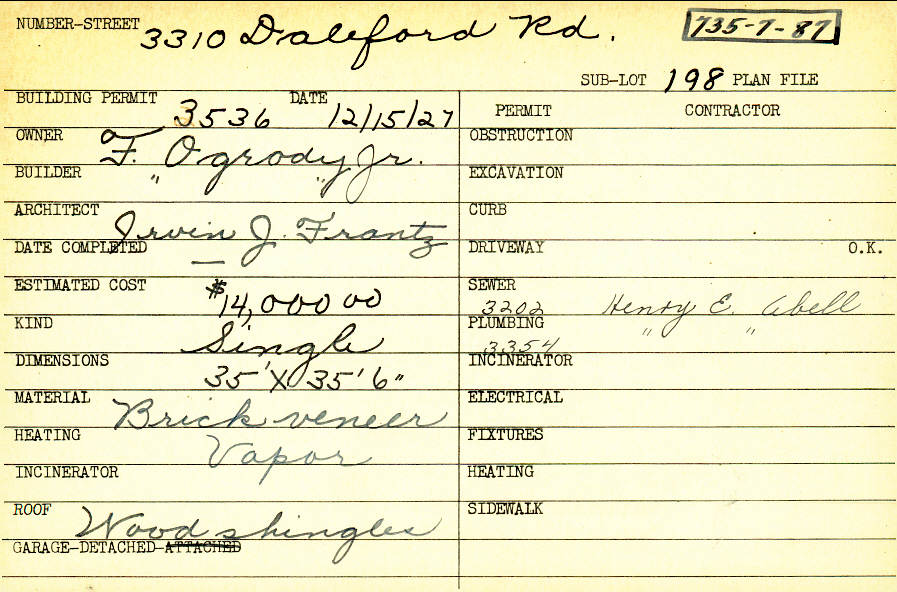 NUMBER-STREET 3310 Daleford Rd. 735-7-87
SUB-LOT 198 PLAN FILE
BUILDING PERMIT 3536 DATE 12/15/27
PERMIT CONTRACTOR
OWNER F. Ogrody Jr.
OBSTRUCTION
BUILDER " "
EXCAVATION
ARCHITECT Irvin J. Frantz
CURB
DATE COMPLETED —
DRIVEWAY O.K.
ESTIMATED COST $14,000 00
SEWER 3202 Henry E. Abell
KIND Single
PLUMBING 3354 " "
DIMENSIONS 35' X 35' 6"
INCINERATOR
MATERIAL Brick veneer
ELECTRICAL
HEATING Vapor
FIXTURES
INCINERATOR
HEATING
ROOF Wood shingles
SIDEWALK
GARAGE-DETACHED-ATTACHED